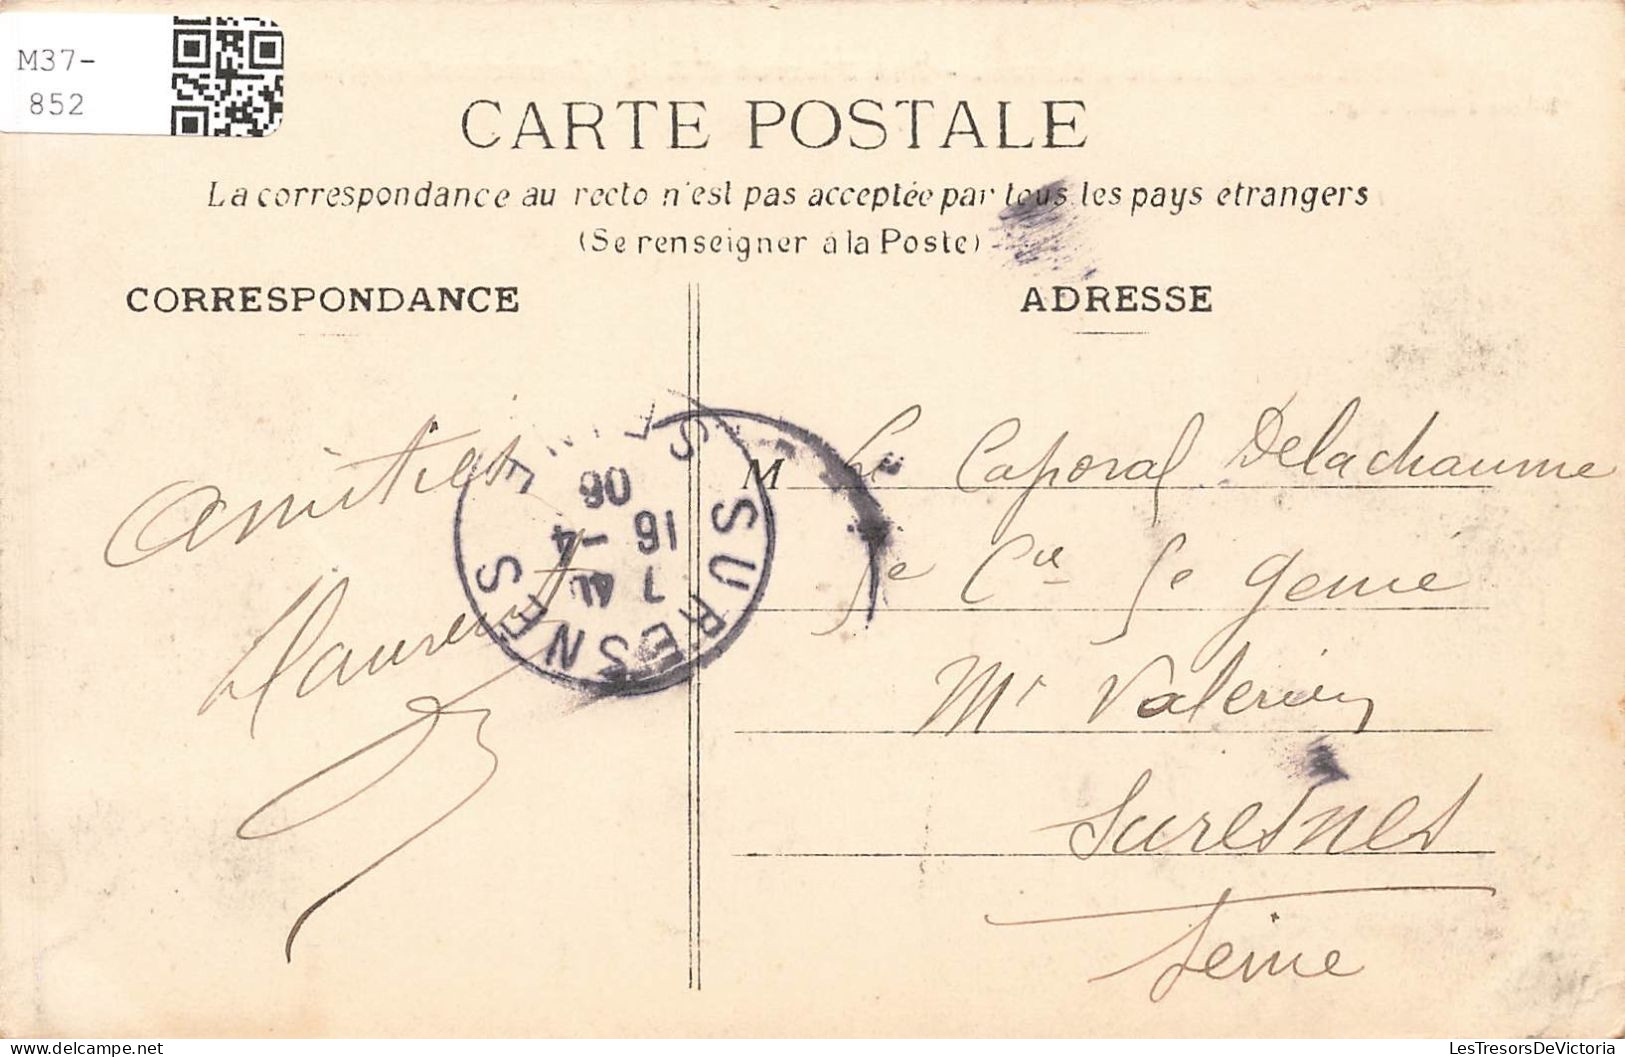 M37-
852
CARTE POSTALE
La correspondance au recto n'est pas acceptée par tous les pays etrangers
(Se renseigner à la Poste)
CORRESPONDANCE
ADRESSE
Amitiés
Laurent
SURESNES
SEINE
7
16 -4
06
M Le Caporal Delachaume
5e Cie 5e Genie
Mt Valerien
Suresnes
Seine
LesTresorsDeVictoria